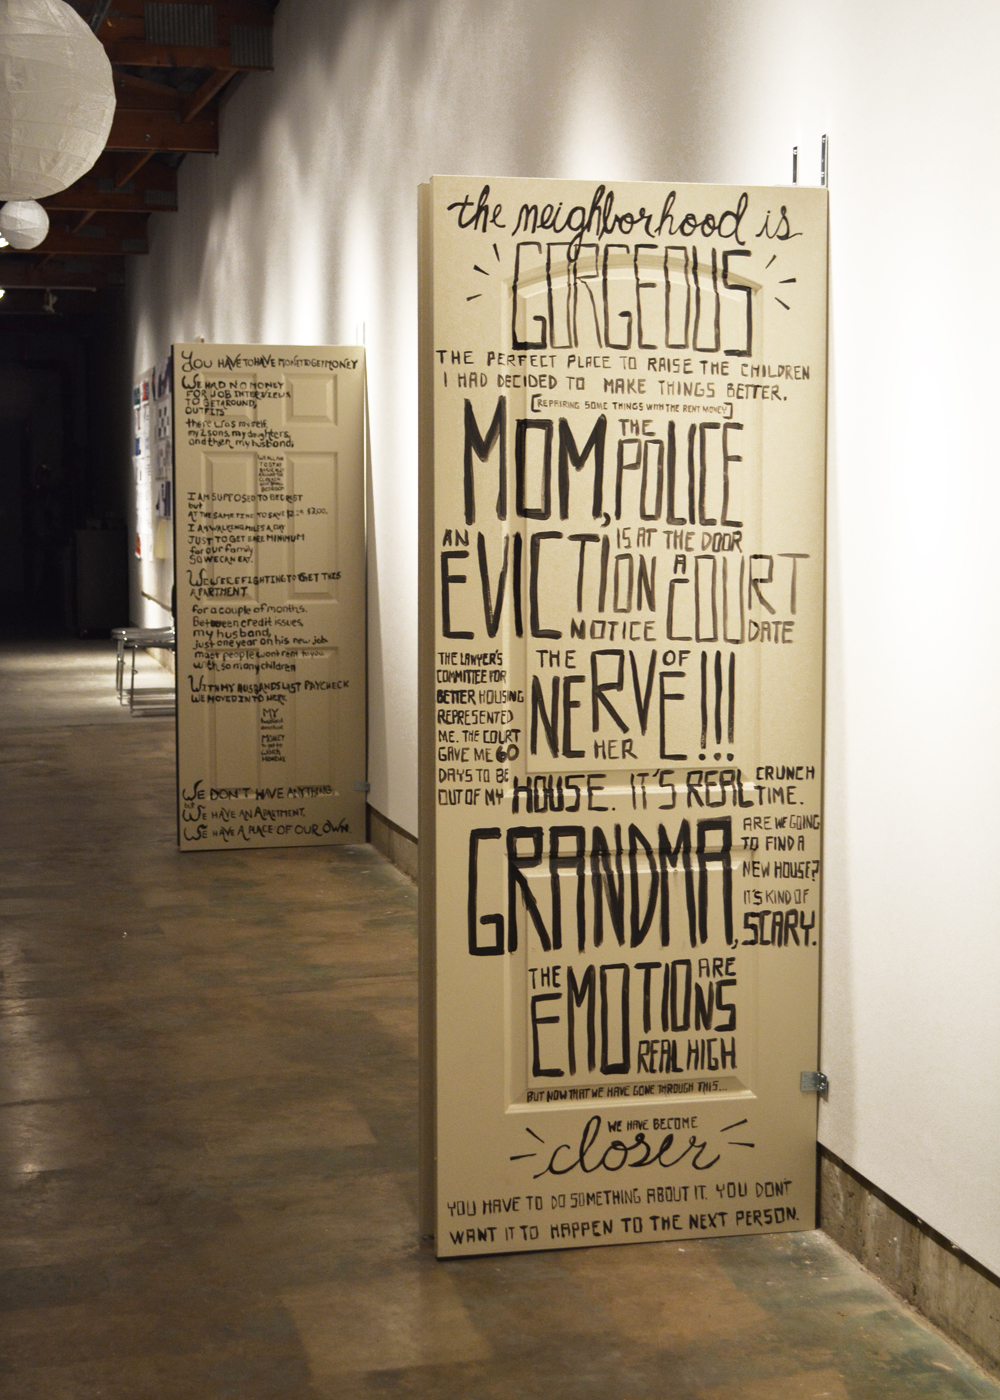 the neighborhood is
GORGEOUS
THE PERFECT PLACE TO RAISE THE CHILDREN
I HAD DECIDED TO MAKE THINGS BETTER.
[REPAIRING SOME THINGS WITH THE RENT MONEY]
MOM, THE POLICE
IS AT THE DOOR
AN EVICTION NOTICE
A COURT DATE
THE NERVE OF HER!!!
THE LAWYER'S
COMMITTEE FOR
BETTER HOUSING
REPRESENTED
ME. THE COURT
GAVE ME 60
DAYS TO BE
OUT OF MY HOUSE. IT'S REAL CRUNCH TIME.
GRANDMA,
ARE WE GOING
TO FIND A
NEW HOUSE?
IT'S KIND OF
SCARY.
THE EMOTIONS ARE
REAL HIGH
BUT NOW THAT WE HAVE GONE THROUGH THIS...
WE HAVE BECOME
closer
YOU HAVE TO DO SOMETHING ABOUT IT. YOU DON'T
WANT IT TO HAPPEN TO THE NEXT PERSON.
YOU HAVE TO HAVE MONEY TO GET MONEY
WE HAD NO MONEY
FOR JOB INTERVIEWS
TO GET AROUND,
OUTFITS
there was myself,
my 2 sons, my daughters,
and then my husband,
I AM SUPPOSED TO BE
but
AT THE SAME TIME TO SAVE $2.00
I AM WALKING MILES A DAY
JUST TO GET BARE MINIMUM
for our family
SO WE CAN EAT.
WE WERE FIGHTING TO GET THIS
APARTMENT
for a couple of months.
Between credit issues,
my husband,
just one year on his new job
most people wont rent to you
with so many children
WITH MY HUSBANDS LAST PAYCHECK
WE MOVED INTO HERE.
MY
MONEY
WE DON'T HAVE ANYTHING,
but
WE HAVE AN APARTMENT,
WE HAVE A PLACE OF OUR OWN.